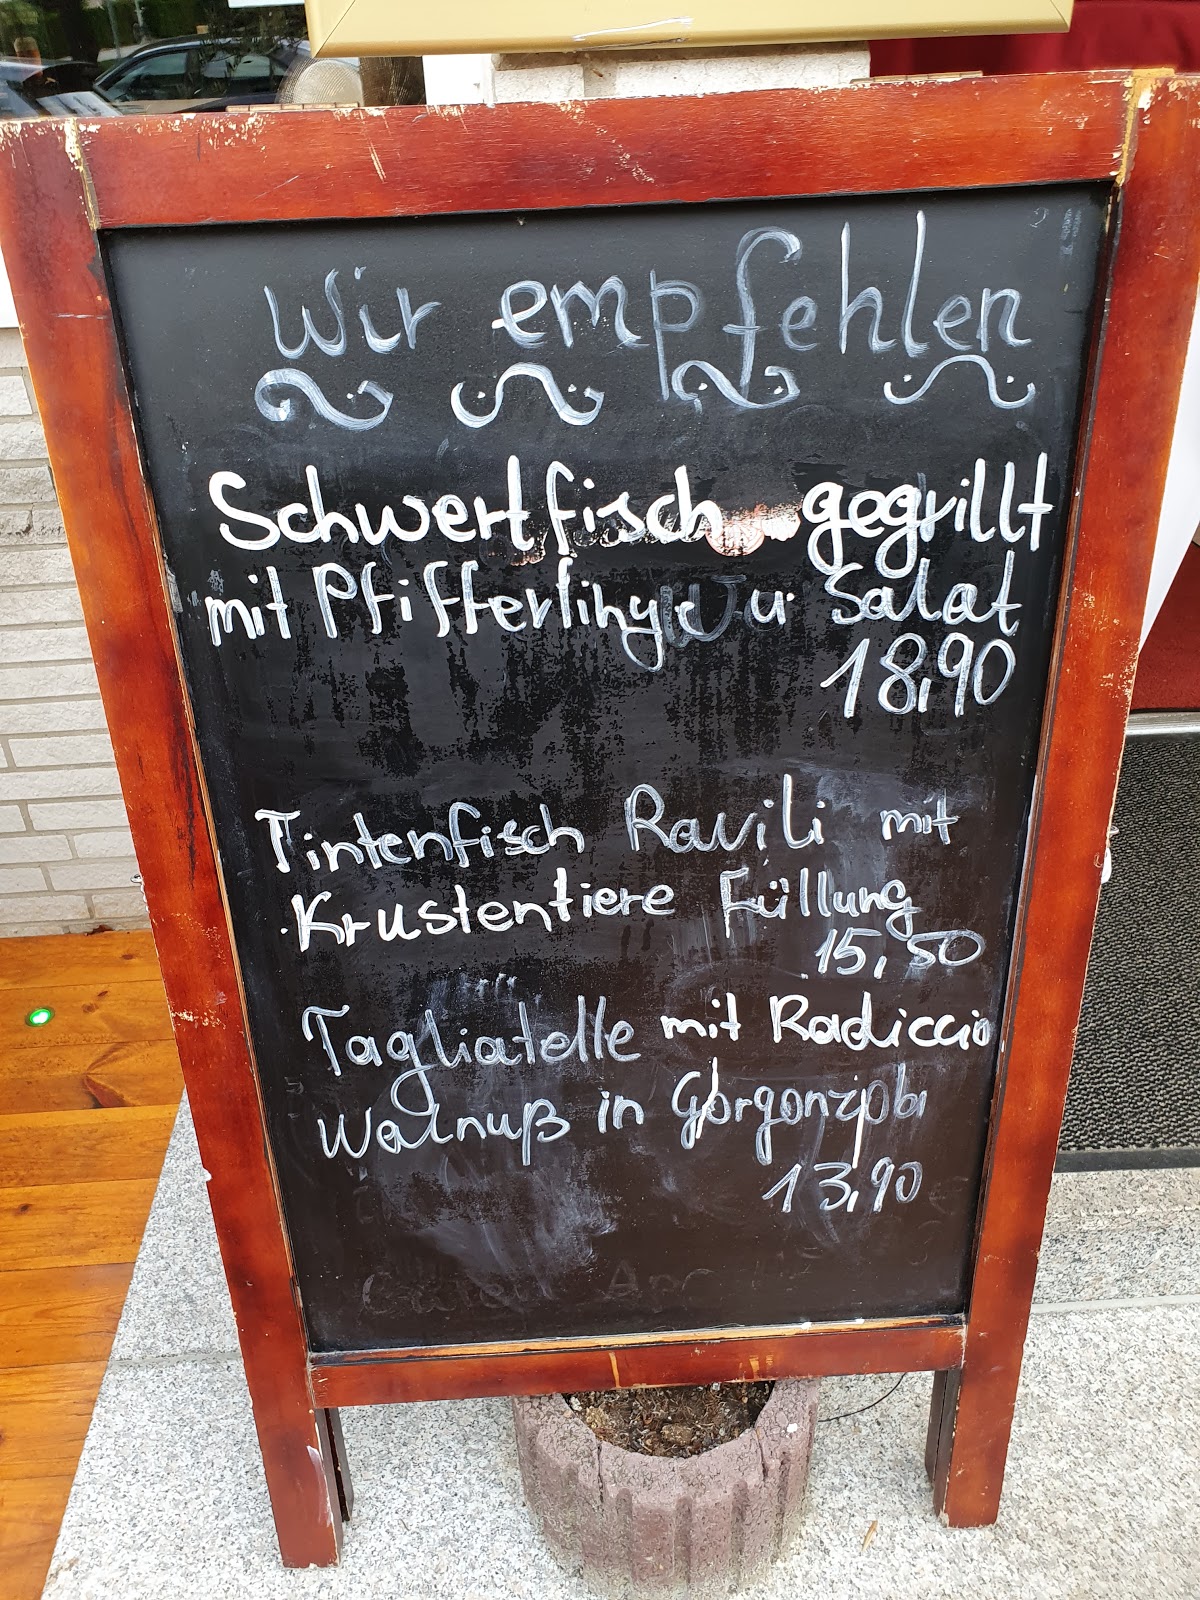 Wir empfehlen
Schwertfisch gegrillt
mit Pfifferlinge u. Salat
18,90
Tintenfisch Ravili mit
Krustentiere Füllung
15,50
Tagliatelle mit Radiccio
Walnuß in Gorgonzola
13,90